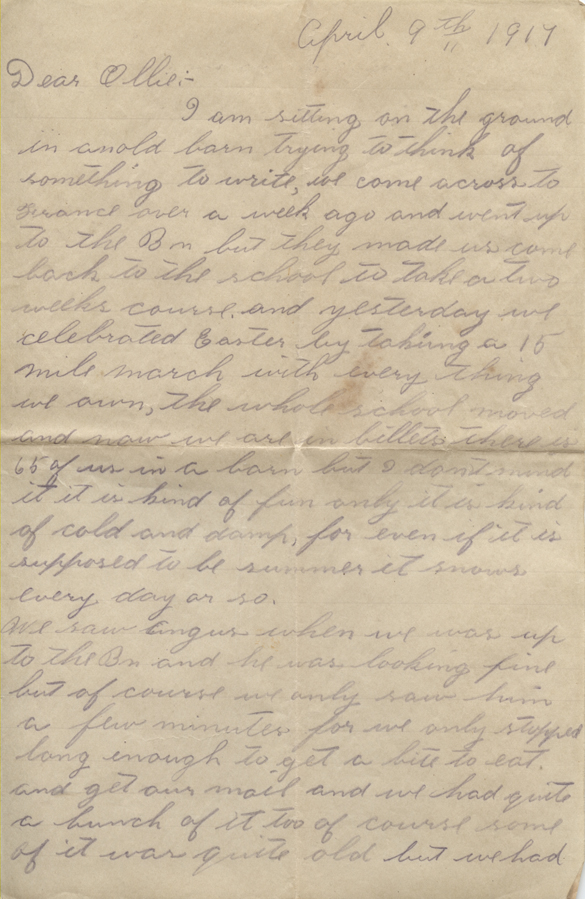 April 9th 1917
Dear Ollie:-
I am sitting on the ground
in an old barn trying to think of
something to write, we come across to
France over a week ago and went up
to the Bn but they made us come
back to the school to take a two
weeks course. and yesterday we
celebrated Easter by taking a 15
mile march with every thing
we own, the whole school moved
and now we are in billets there is
65 of us in a barn but I dont mind
it it is kind of fun only it is kind
of cold and damp, for even if it is
supposed to be summer it snows
every day or so.
We saw Angus when we was up
to the Bn and he was looking fine
but of course we only saw him
a few minutes for we only stopped
long enough to get a bite to eat.
and get our mail and we had quite
a bunch of it too of course some
of it was quite old but we had